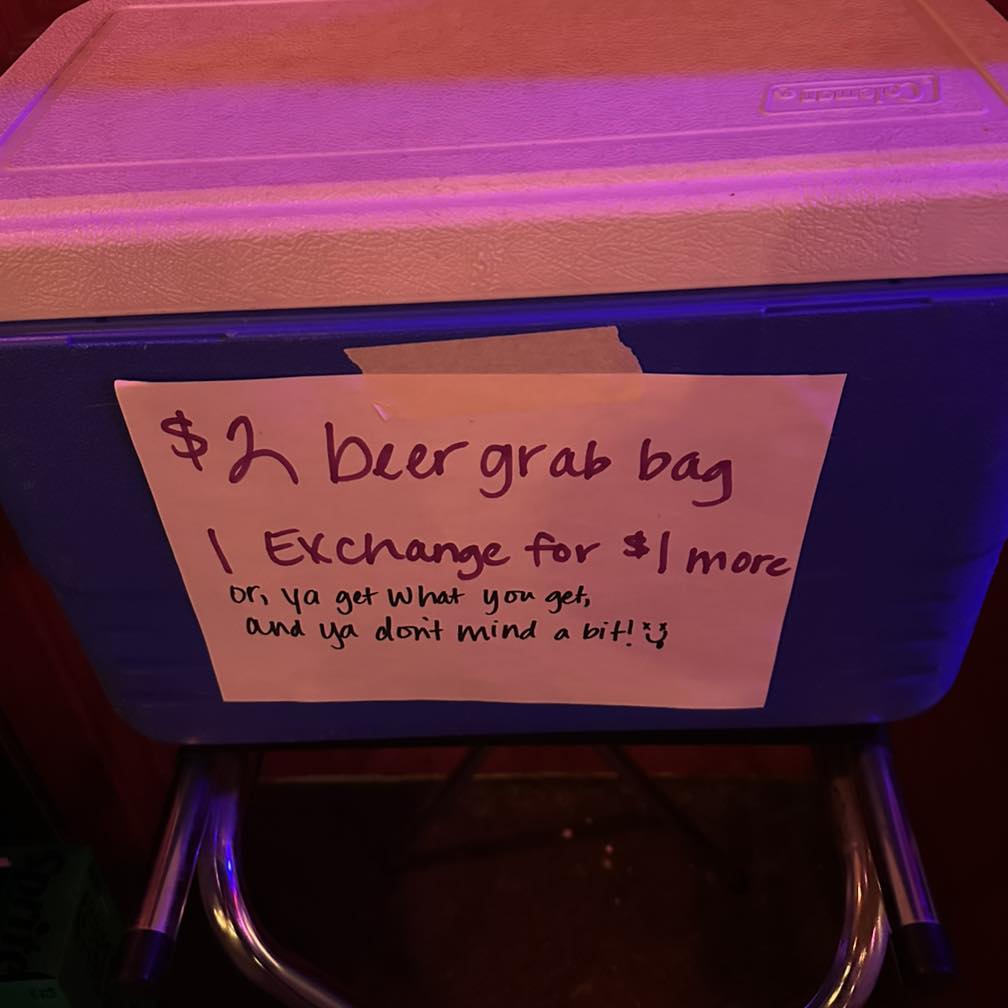 Coleman
$2 beer grab bag
1 Exchange for $1 more
or, ya get what you get,
and ya don't mind a bit!